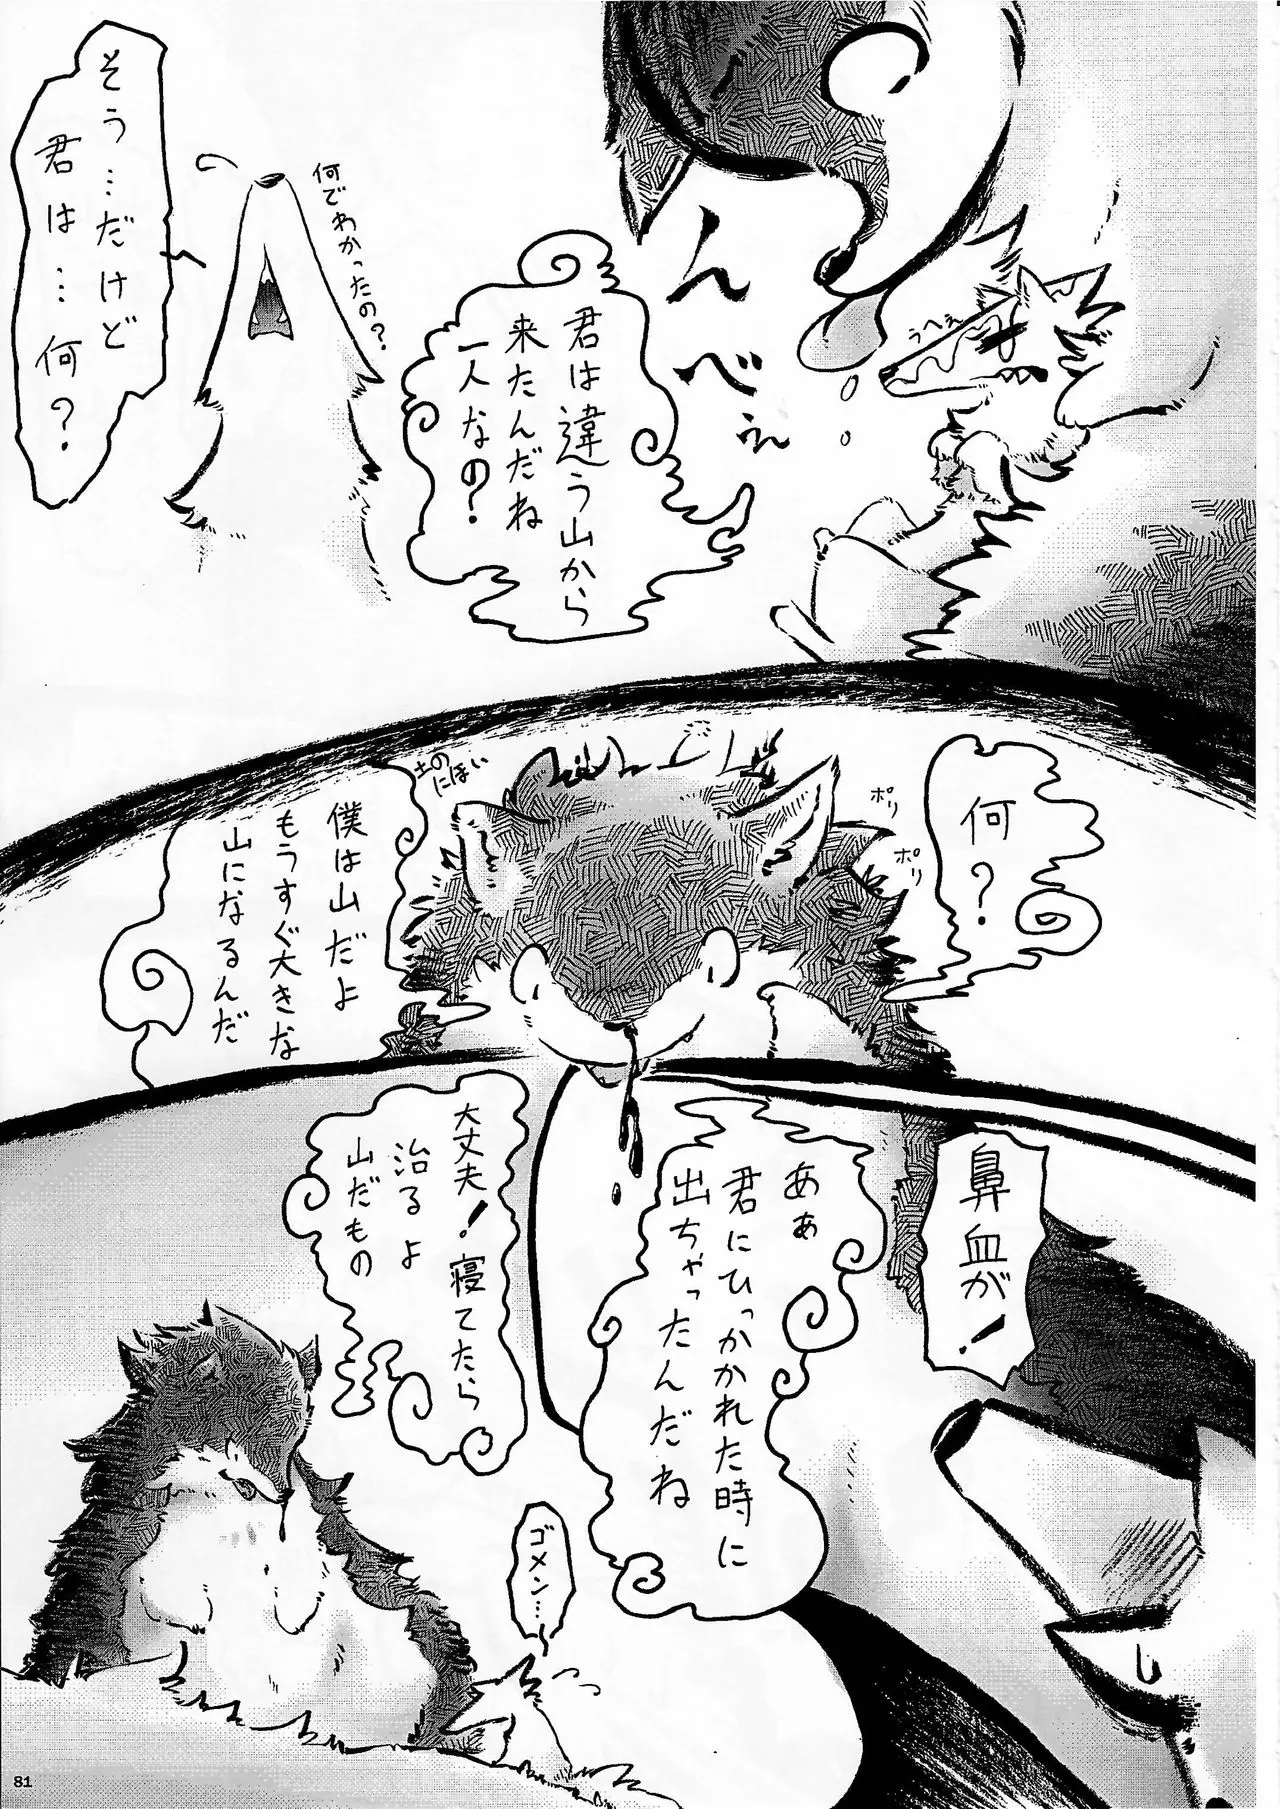 んべぇ
うへぇ
君は違う山から
来たんだね
一人なの?
何でわかったの?
そう…だけど
君は…何?
何?
ポリ
ポリ
土の
にほい
僕は山だよ
もうすぐ大きな
山になるんだ
鼻血が!
あぁ
君にひっかかれた時に
出ちゃったんだね
大丈夫!寝てたら
治るよ
山だもの
ゴメン…
81